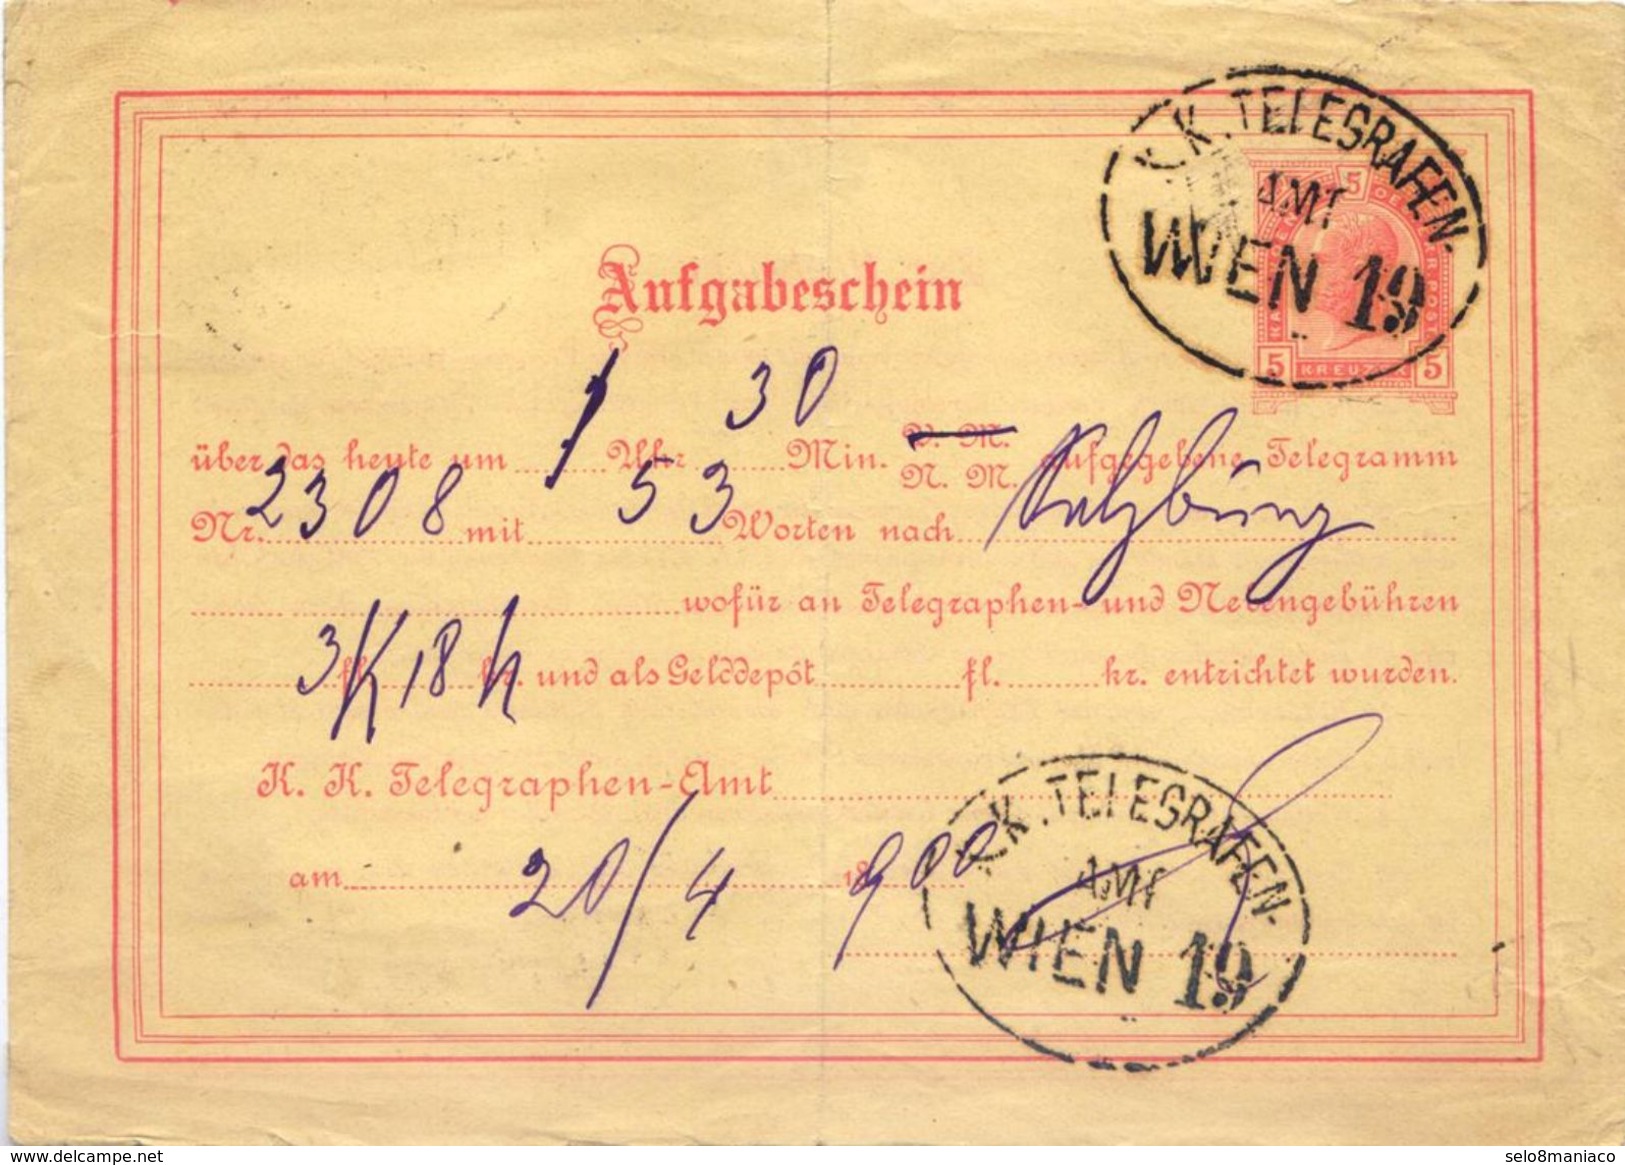 K.K. TELEGRAFEN-
AMT
WIEN 19
5
5 KREUZER 5
Aufgabeschein
über das heute um 1 Uhr 30 Min. V. M. N. M. aufgegebene Telegramm
Nr. 2308 mit 53 Worten nach Salzburg
wofür an Telegraphen- und Nebengebühren
3 fl. K 18 kr. h und als Gelddepôt fl. kr. entrichtet wurden.
K. K. Telegraphen-Amt
K.K. TELEGRAFEN-
AMT
WIEN 19
am 20/4 18 900
www.delcampe.net
selo8maniaco